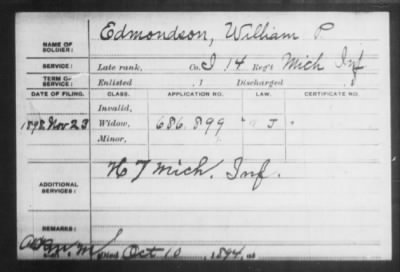 Edmondson, William P
NAME OF SOLDIER:
SERVICE: Late rank, Co. I 14 Reg't Mich Inf
TERM OF SERVICE: Enlisted , 1 Discharged , 1
DATE OF FILING. CLASS. APPLICATION NO. LAW. CERTIFICATE NO.
Invalid,
1898 Nov 23 Widow, 686.899
Minor,
ADDITIONAL SERVICES: Mich. Inf.
REMARKS:
Died Oct 10, 1894, at